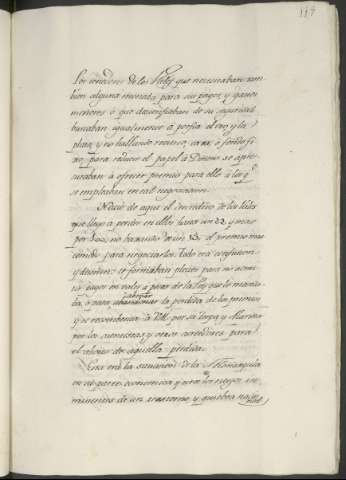 117
Los tenedores de los Vales que necesitaban tam-
bien alguna moneda para sus pagos, y gastos
menores ó que desconfiaban de su seguridad
buscaban igualmente á porfia el oro, y la
plata, y no hallando recurso, caxa, ó fondo fi-
xo, para reducir el papel á Dinero se apre-
suraban á ofrecer premio para ello á los q.e
se empleaban en tal negociacion.
Nació de aqui el descredito de los Vales
que llegó á perder en ellos hasta un 22 y mas
por 100, no bajando de un 13 el premio mas
comodo para negociarlos. Todo era confusion
y desorden: se formaban pleitos para no admi-
tir pagos en vales, á pesar de la Ley que lo manda-
ba, ó para abonar la perdida de los premios
y se recombenia á VM. por su tropa, y Marina
por los asentistas, y otros acreedores para
el abono de aquella perdida.
Esta era la situacion de la Monarquia
en su parte economica, y estos los riesgos in-
minentes de un trastorno, y quiebra nacio-
nal